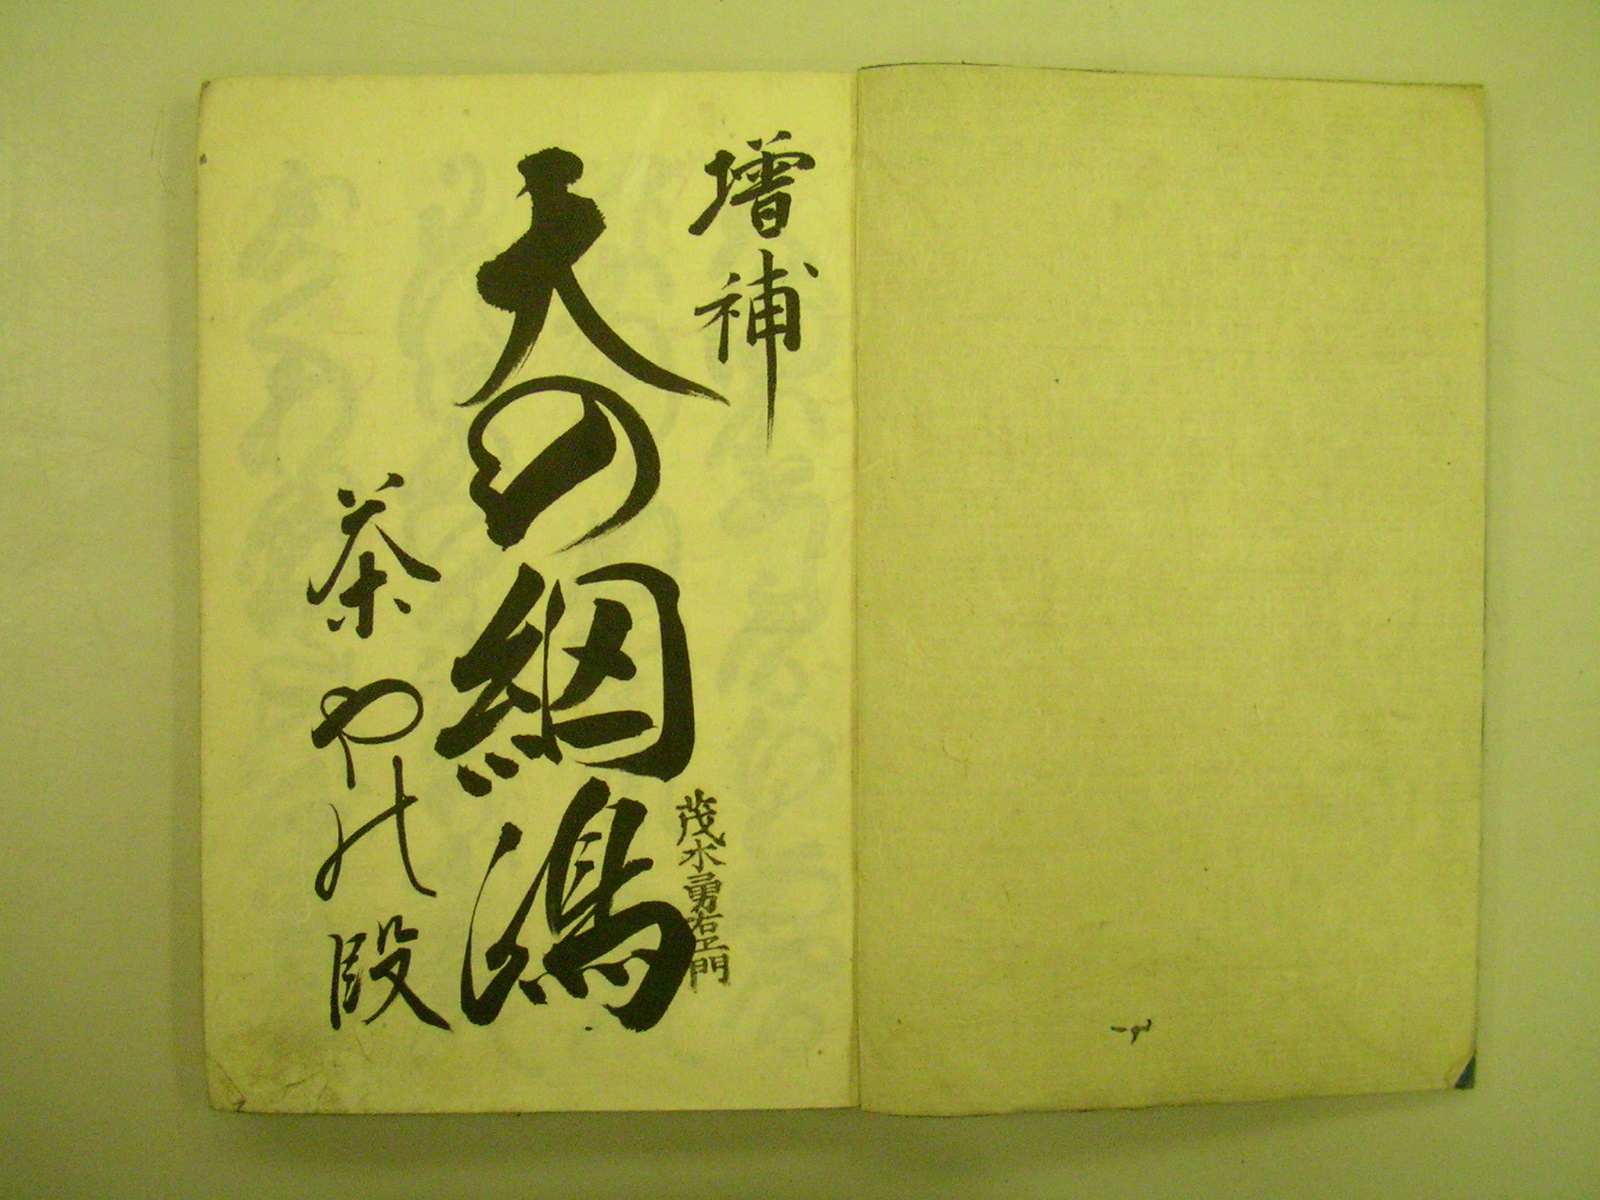 増補
天の網嶋
茂木勇右エ門
茶やの段